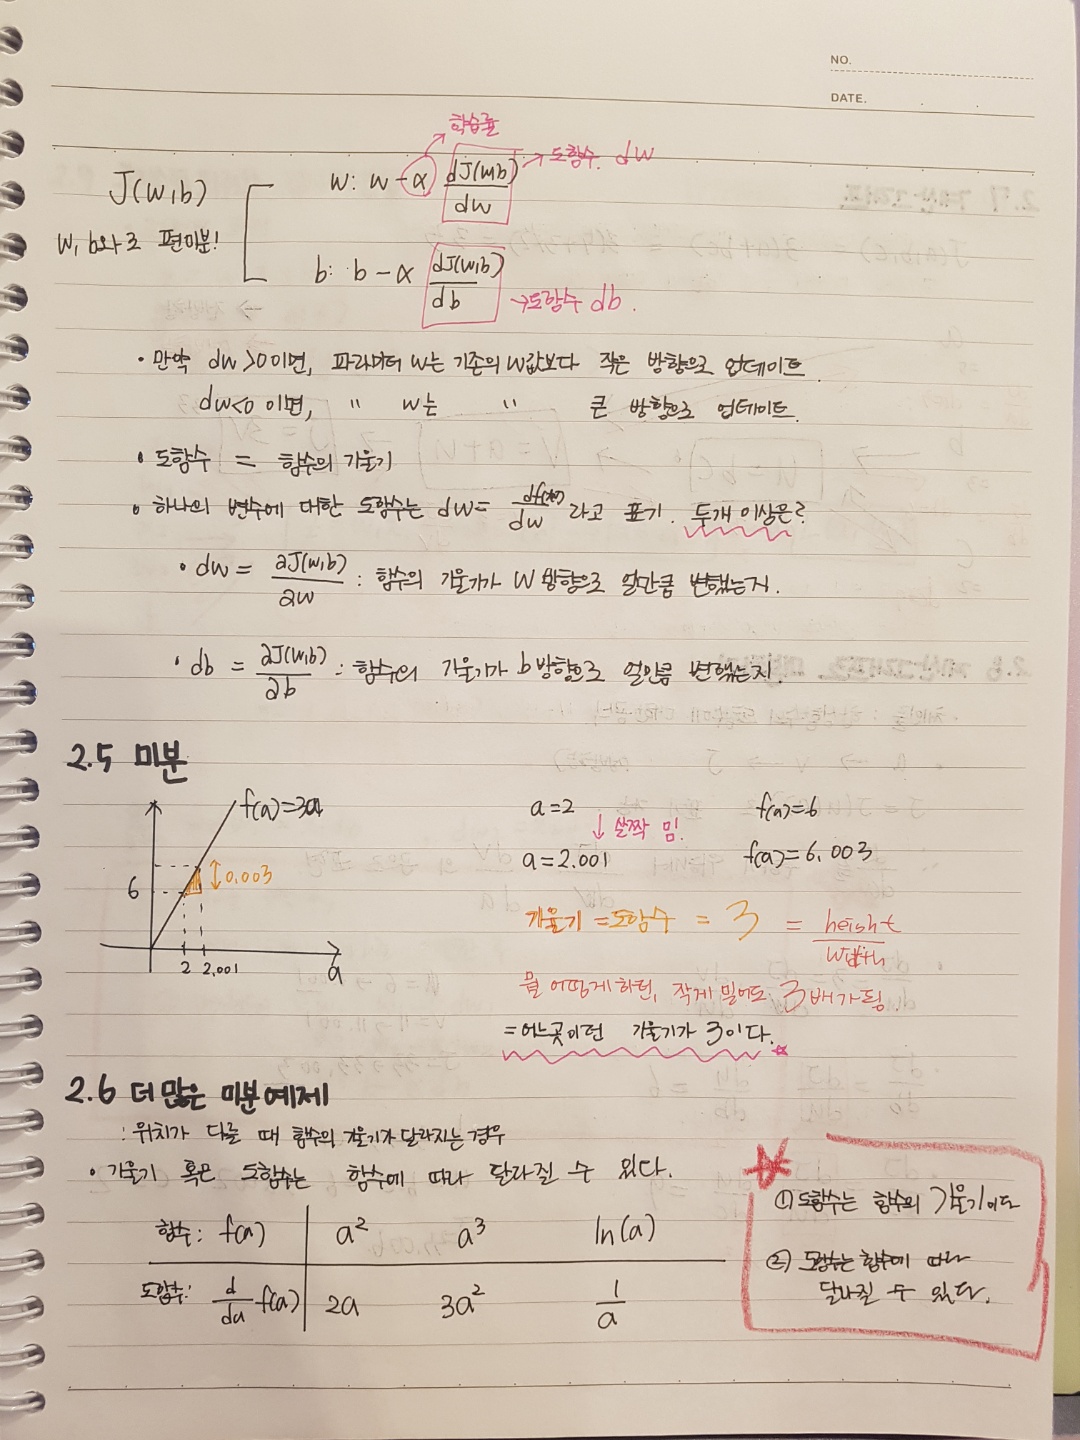 NO.
DATE.
학습률
J(w,b)
w, b와로 편미분!
w: w-α dJ(w,b)/dw → 도함수. dw
b: b-α dJ(w,b)/db → 도함수 db.
• 만약 dw>0이면, 파라미터 w는 기존의 w값보다 작은 방향으로 업데이트.
dw<0 이면, " w는 " 큰 방향으로 업데이트.
• 도함수 = 함수의 기울기
• 하나의 변수에 대한 도함수는 dw= df(w)/dw 라고 표기. 두개 이상은?
• dw = ∂J(w,b)/∂w : 함수의 기울기가 W 방향으로 얼만큼 변했는지.
• db = ∂J(w,b)/∂b : 함수의 기울기가 b방향으로 얼만큼 변했는지.
2.5 미분
f(a)=3a
0.003
6
2 2.001 a
a=2 f(a)=6
↓ 살짝 밈.
a=2.001 f(a)=6.003
기울기 =도함수 = 3 = height/width
뭘 어떻게 하던, 작게 밀어도 3배가 됨.
=어느곳이던 기울기가 3이다.
2.6 더 많은 미분 예제
: 위치가 다를 때 함수의 기울기가 달라지는 경우
• 기울기 혹은 도함수는 함수에 따라 달라질 수 있다.
함수: f(a) a² a³ ln(a)
도함수: d/da f(a) 2a 3a² 1/a
① 도함수는 함수의 기울기이다
② 도함수는 함수에 따라
달라질 수 있다.